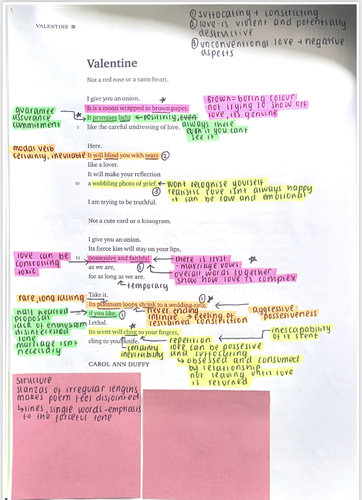 ① suffocating + constricting
② love is violent and potentially
destructive
③ unconventional love + negative
aspects
VALENTINE
Valentine
Not a red rose or a satin heart.
I give you an onion.
It is a moon wrapped in brown paper.
brown = boring colour
not trying to show off
love, its genuine
guarantee
assurance
commitment
It promises light
← positivity, even
always there
even if you cant
see it
5 like the careful undressing of love.
Here.
modal verb
certainty, inevitable
It will blind you with tears ②
like a lover.
It will make your reflection
10 a wobbling photo of grief.
← wont recognise yourself
③ realistic love isnt always happy
it can be raw and emotional
I am trying to be truthful.
Not a cute card or a kissogram.
I give you an onion.
Its fierce kiss will stay on your lips,
love can be
controlling
toxic
15 possessive and faithful
← there is trust
- marriage vows
as we are,
overlap words together
show how love is complex
for as long as we are.
temporary
Take it.
rare, long lasting
Its platinum loops shrink to a wedding-ring,
half hearted
proposal
lack of enthusiasm
disinterested
long
marriage isnt
necessary
20 if you like.
never ending
infinite → feeling of
restrained constriction
aggressive
possessiveness
Lethal.
Its scent will cling to your fingers,
inescapability
of its scent
cling to your knife.
certainty
inevitability
repetition
love can be possesive
and suffocating
↳ obsessed and consumed
by relationship
not leaving until love
is returned
CAROL ANN DUFFY
Structure
stanzas of irregular lengths
makes poem feel disjointed
↳ lines, single words - emphasis
to the forceful tone